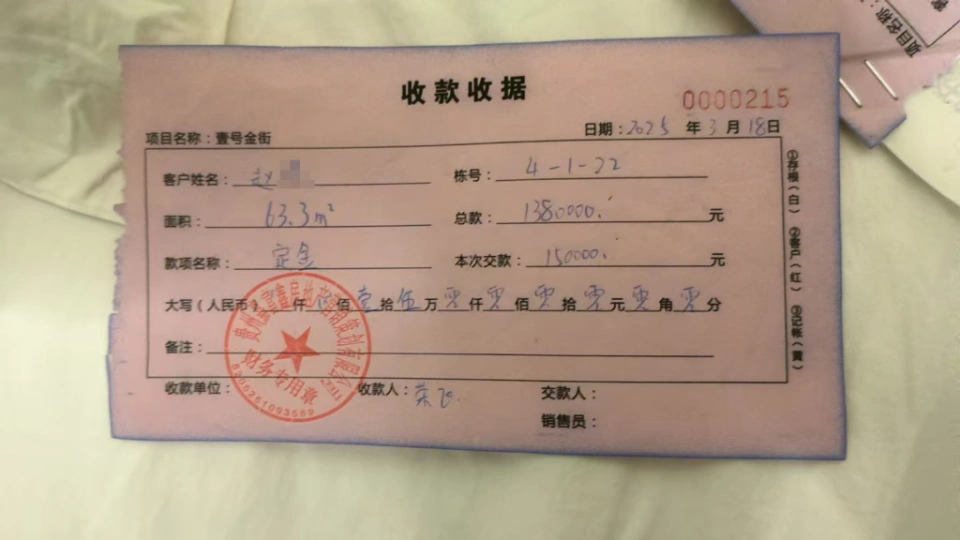 收款收据
0000215
项目名称：壹号金街
日期：2025 年 3 月 18 日
客户姓名：赵
栋号：4-1-22
面积：63.3m²
总款：1380000. 元
款项名称：定金
本次交款：150000. 元
大写（人民币） 仟 佰 壹 拾 伍 万 零 仟 零 佰 零 拾 零 元 零 角 零 分
备注：
收款单位：
收款人：
交款人：
销售员：
①存根（白） ②客户（红） ③记帐（黄）
财务专用章
项目名称：